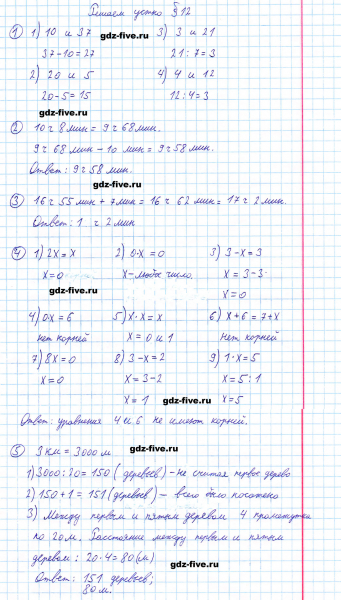 Решаем устно § 12
① 1) 10 и 37 3) 3 и 21
gdz-five.ru gdz-five.ru
37-10=27 21:7=3
2) 20 и 5 4) 4 и 12
20-5=15 12:4=3
gdz-five.ru
② 10ч 8мин = 9ч 68мин.
9ч 68 мин - 10 мин = 9ч 58мин.
Ответ: 9ч 58 мин.
gdz-five.ru
③ 16ч 55мин + 7мин = 16ч 62мин = 17ч 2мин.
Ответ: 1 ч 2мин
gdz-five.ru
④ 1) 2X=X 2) 0·X=0 3) 3-X=3
X=0 X-любое число. X=3-3
gdz-five.ru
X=0
4) 0·X=6 5) X·X=X 6) X+6=7+X
нет корней X=0 и 1 Нет корней
gdz-five.ru
7) 8X=0 8) 3-X=2 9) 1·X=5
X=0 X=3-2 X=5:1
X=1 gdz-five.ru X=5
Ответ: уравнения 4 и 6 не имеют корней.
⑤ 3км=3000м gdz-five.ru
1) 3000:20=150 (деревьев) - не считая первое дерево
2) 150+1=151 (деревьев) - всего было посажено
3) Между первым и пятым деревом 4 промежутка
по 20м. Расстояние между первым и пятым
деревом: 20·4=80 (м)
gdz-five.ru
Ответ: 151 деревьев;
80м.